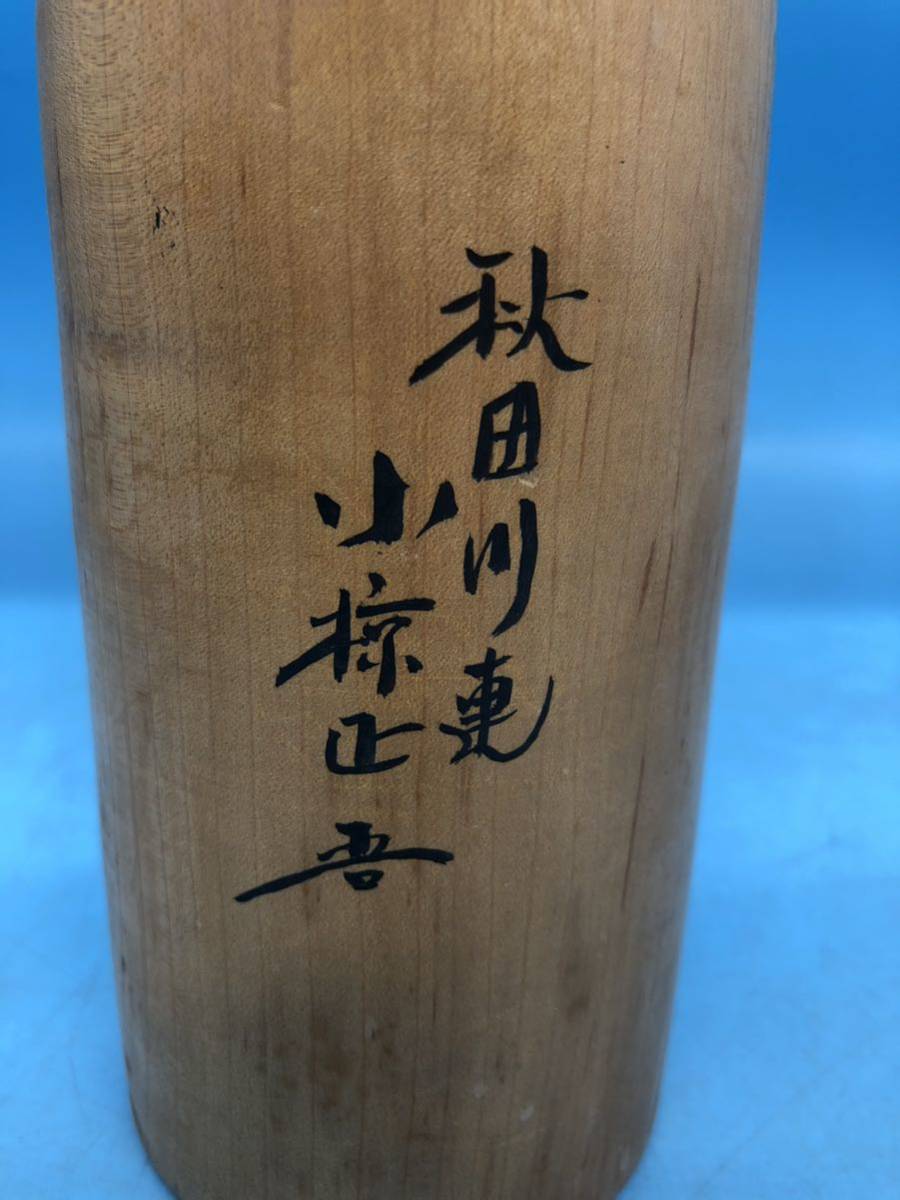 秋田川連
小椋正吾